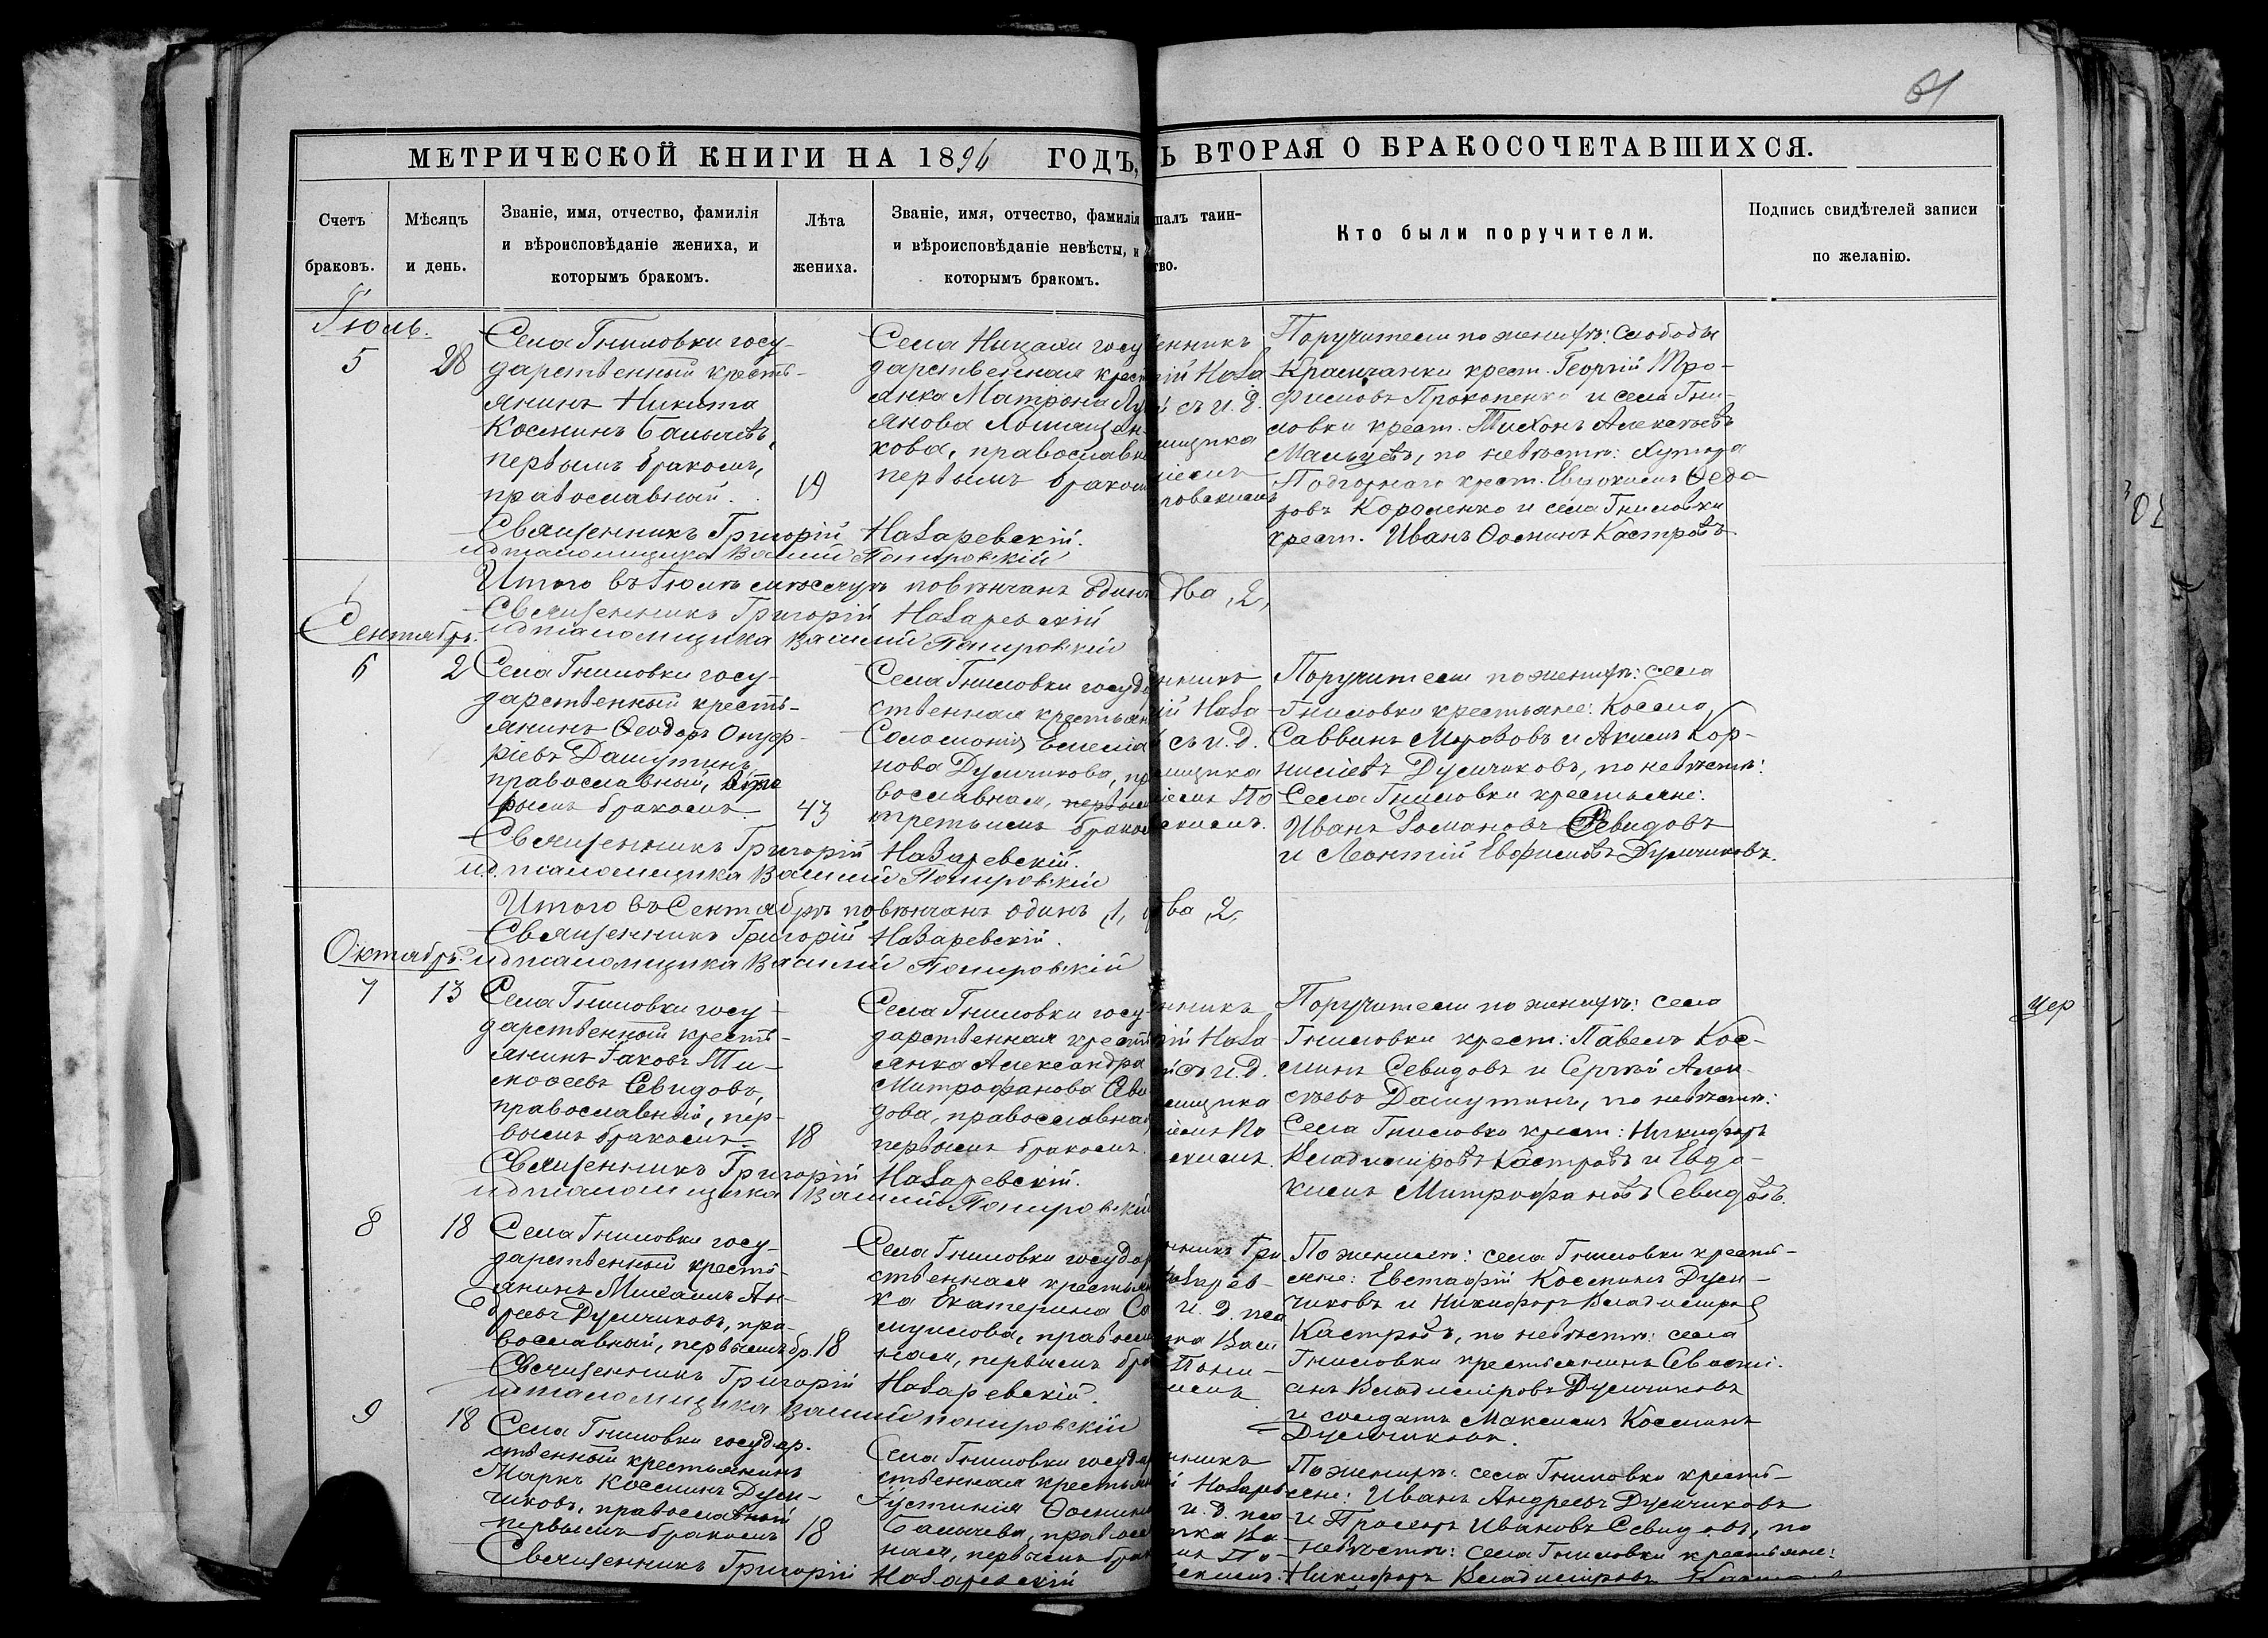 61
МЕТРИЧЕСКОЙ КНИГИ НА 1896 ГОДЪ,
Ь ВТОРАЯ О БРАКОСОЧЕТАВШИХСЯ.
Счетъ браковъ.
Мѣсяцъ и день.
Званіе, имя, отчество, фамилія
и вѣроисповѣданіе жениха, и
которымъ бракомъ.
Лѣта
жениха.
Званіе, имя, отчество, фамилія
и вѣроисповѣданіе невѣсты, и
которымъ бракомъ.
шалъ таин-
тво.
Кто были поручители.
Подпись свидѣтелей записи
по желанію.
Іюль.
5
28
Села Гниловки госу-
дарственный кресть-
янинъ Никита
Косминъ Балычевъ,
первымъ бракомъ,
православный.
19
Села Ницахи госу
дарственная крест
янка Матрона Лу
янова Ломацен-
кова, православн
первымъ браком
енникъ
рій Наза
й съ и. д.
мщика
ліемъ
ровскимъ
Поручители по женихѣ: слободы
Крамчанки крест. Георгій Тро-
фимовъ Прокопенко и села Гни-
ловки крест. Тихонъ Алексѣевъ
Мальцевъ, по невѣстѣ: хутора
Подгорнаго крест. Евдокимъ Ѳедо
ровъ Короленко и села Гниловки
крест. Иванъ Ѳоминъ Кастровъ.
Священникъ Григорій Назаревскій.
ид псаломщика Василій Понировскій
Итого въ Іюлѣ мѣсяцѣ повѣнчанъ одинъ
два „2„
Священникъ Григорій Назаревскій
ид псаломщика Василій Понировскій
Сентябрь.
6
2
Села Гниловки госу-
дарственный кресть-
янинъ Ѳеодоръ Онуф-
ріевъ Дашутинъ,
православный, вто
рымъ бракомъ.
43
Села Гниловки госуда
ственная крестьян
Соломонія Емеліа
нова Думчикова, пр
вославная, первым
третьимъ брако
нникъ
рій Наза
й съ и. д.
мщика
ліемъ По
скимъ.
Поручители по женихѣ: села
Гниловки крестьяне: Косма
Саввинъ Морозовъ и Акимъ Кор-
нилiевъ Думчиковъ, по невѣстѣ:
Села Гниловки крестьяне:
Иванъ Романовъ Севидовъ
и Леонтій Евфимовъ Думчиковъ.
Священникъ Григорій Назаревскій.
ид. псаломщика Василій Понировскій
Итого въ Сентябрѣ повѣнчанъ одинъ „1„
два „2„
Священникъ Григорій Назаревскій.
Октябрь.
ид псаломщика Василій Понировскій
7
13
Села Гниловки госу-
дарственный кресть-
янинъ Іаковъ Ти-
моѳеевъ Севидовъ,
православный, пер-
вымъ бракомъ.
18
Села Гниловки госу
дарственная кресть
янка Александра
Митрофанова Севи
дова, православная
первымъ бракомъ.
нникъ
рій Наза
й съ и. д.
мщика
ліемъ По
скимъ.
Поручители по женихѣ: села
Гниловки крест: Павелъ Кос-
минъ Севидовъ и Сергѣй Алек
сѣевъ Дашутинъ, по невѣстѣ:
Села Гниловки крест: Никифоръ
Владиміровъ Кастровъ и Евдо-
кимъ Митрофановъ Севидовъ.
цер
Священникъ Григорій Назаревскій.
ид псаломщика Василій Понировскій
8
18
Села Гниловки госу-
дарственный кресть-
янинъ Михаилъ Ан-
дреевъ Думчиковъ, пра-
вославный, первымъ бр.
18
Села Гниловки государ
ственная крестьян
ка Екатерина Са
муилова, правосл
ная, первымъ бра
нникъ Гри
Назарев-
и. д. пса
ка Васи
Пони-
имъ
По женихѣ: села Гниловки кресть-
яне: Евстафій Косминъ Дум-
чиковъ и Никифоръ Владиміров
Кастровъ, по невѣстѣ: села
Гниловки крестьянинъ Севасті-
анъ Владиміровъ Думчиковъ
и солдатъ Максимъ Косминъ
Думчиковъ.
Священникъ Григорій Назаревскій.
ид псаломщика Василій Понировскій
9
18
Села Гниловки государ-
ственный крестьянинъ
Маркъ Косминъ Дум-
чиковъ, православный
первымъ бракомъ
18
Села Гниловки государ
ственная крестьян
Іустинія Ѳомина
Балычева, правосл
ная, первымъ брак
нникъ
й Назарев
и. д. пса
ка Ва
мъ По-
скимъ.
По женихѣ: села Гниловки кресть-
яне: Иванъ Андреевъ Думчиковъ
и Прохоръ Ивановъ Севидовъ, по
невѣстѣ: села Гниловки крестьяне:
Никифоръ Владиміровъ
Священникъ Григорій Назаревскій